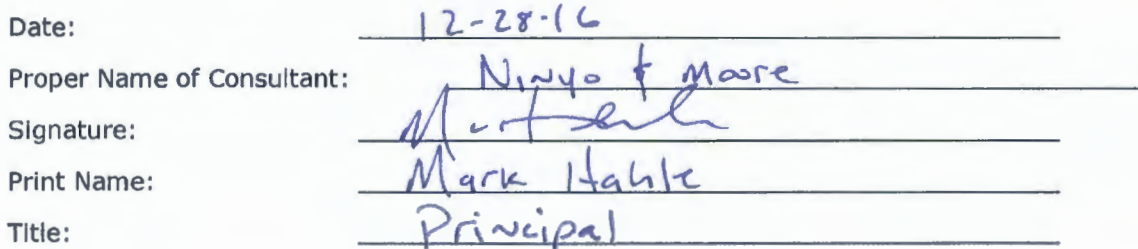 Date: 12-28-16
Proper Name of Consultant: Ninyo & Moore
Signature:
Print Name: Mark Hahle
Title: Principal